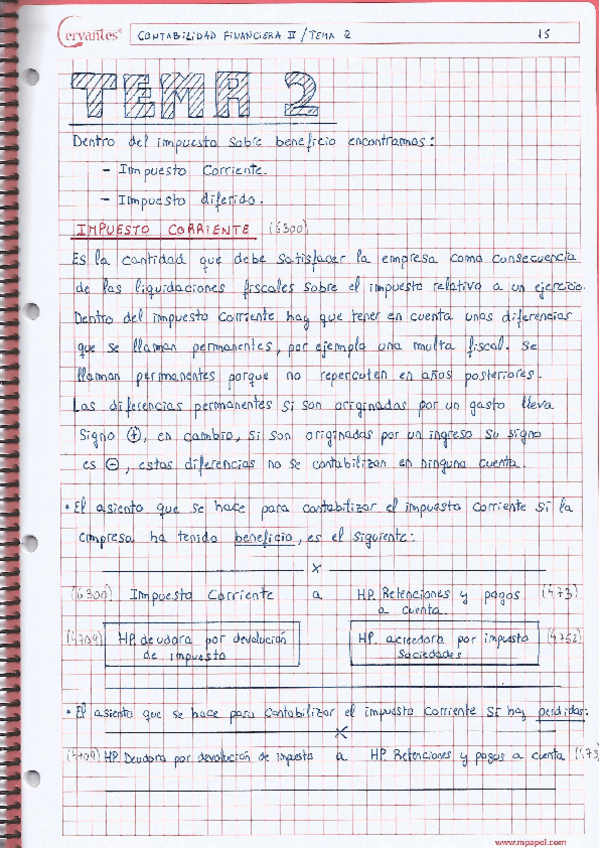 Cervantes® CONTABILIDAD FINANCIERA II / TEMA 2 15
TEMA 2
Dentro del impuesto sobre beneficio encontramos:
- Impuesto Corriente.
- Impuesto diferido.
IMPUESTO CORRIENTE (6300)
Es la cantidad que debe satisfacer la empresa como consecuencia
de las liquidaciones fiscales sobre el impuesto relativo a un ejercicio.
Dentro del impuesto corriente hay que tener en cuenta unas diferencias
que se llaman permanentes, por ejemplo una multa fiscal. Se
llaman permanentes porque no repercuten en años posteriores.
Las diferencias permanentes si son originadas por un gasto lleva
signo ⊕, en cambio, si son originadas por un ingreso su signo
es ⊖, estas diferencias no se contabilizan en ninguna cuenta.
• El asiento que se hace para contabilizar el impuesto corriente si la
empresa ha tenido beneficio, es el siguiente:
x
(6300) Impuesto Corriente a HP. Retenciones y pagos (473)
a cuenta.
(4709) HP. deudora por devolución HP. acreedora por impuesto (4752)
de impuesto Sociedades
• El asiento que se hace para contabilizar el impuesto corriente si hay perdidas:
x
(4709) HP. Deudora por devolución de impuesto a HP. Retenciones y pagos a cuenta (473
www.mpapel.com